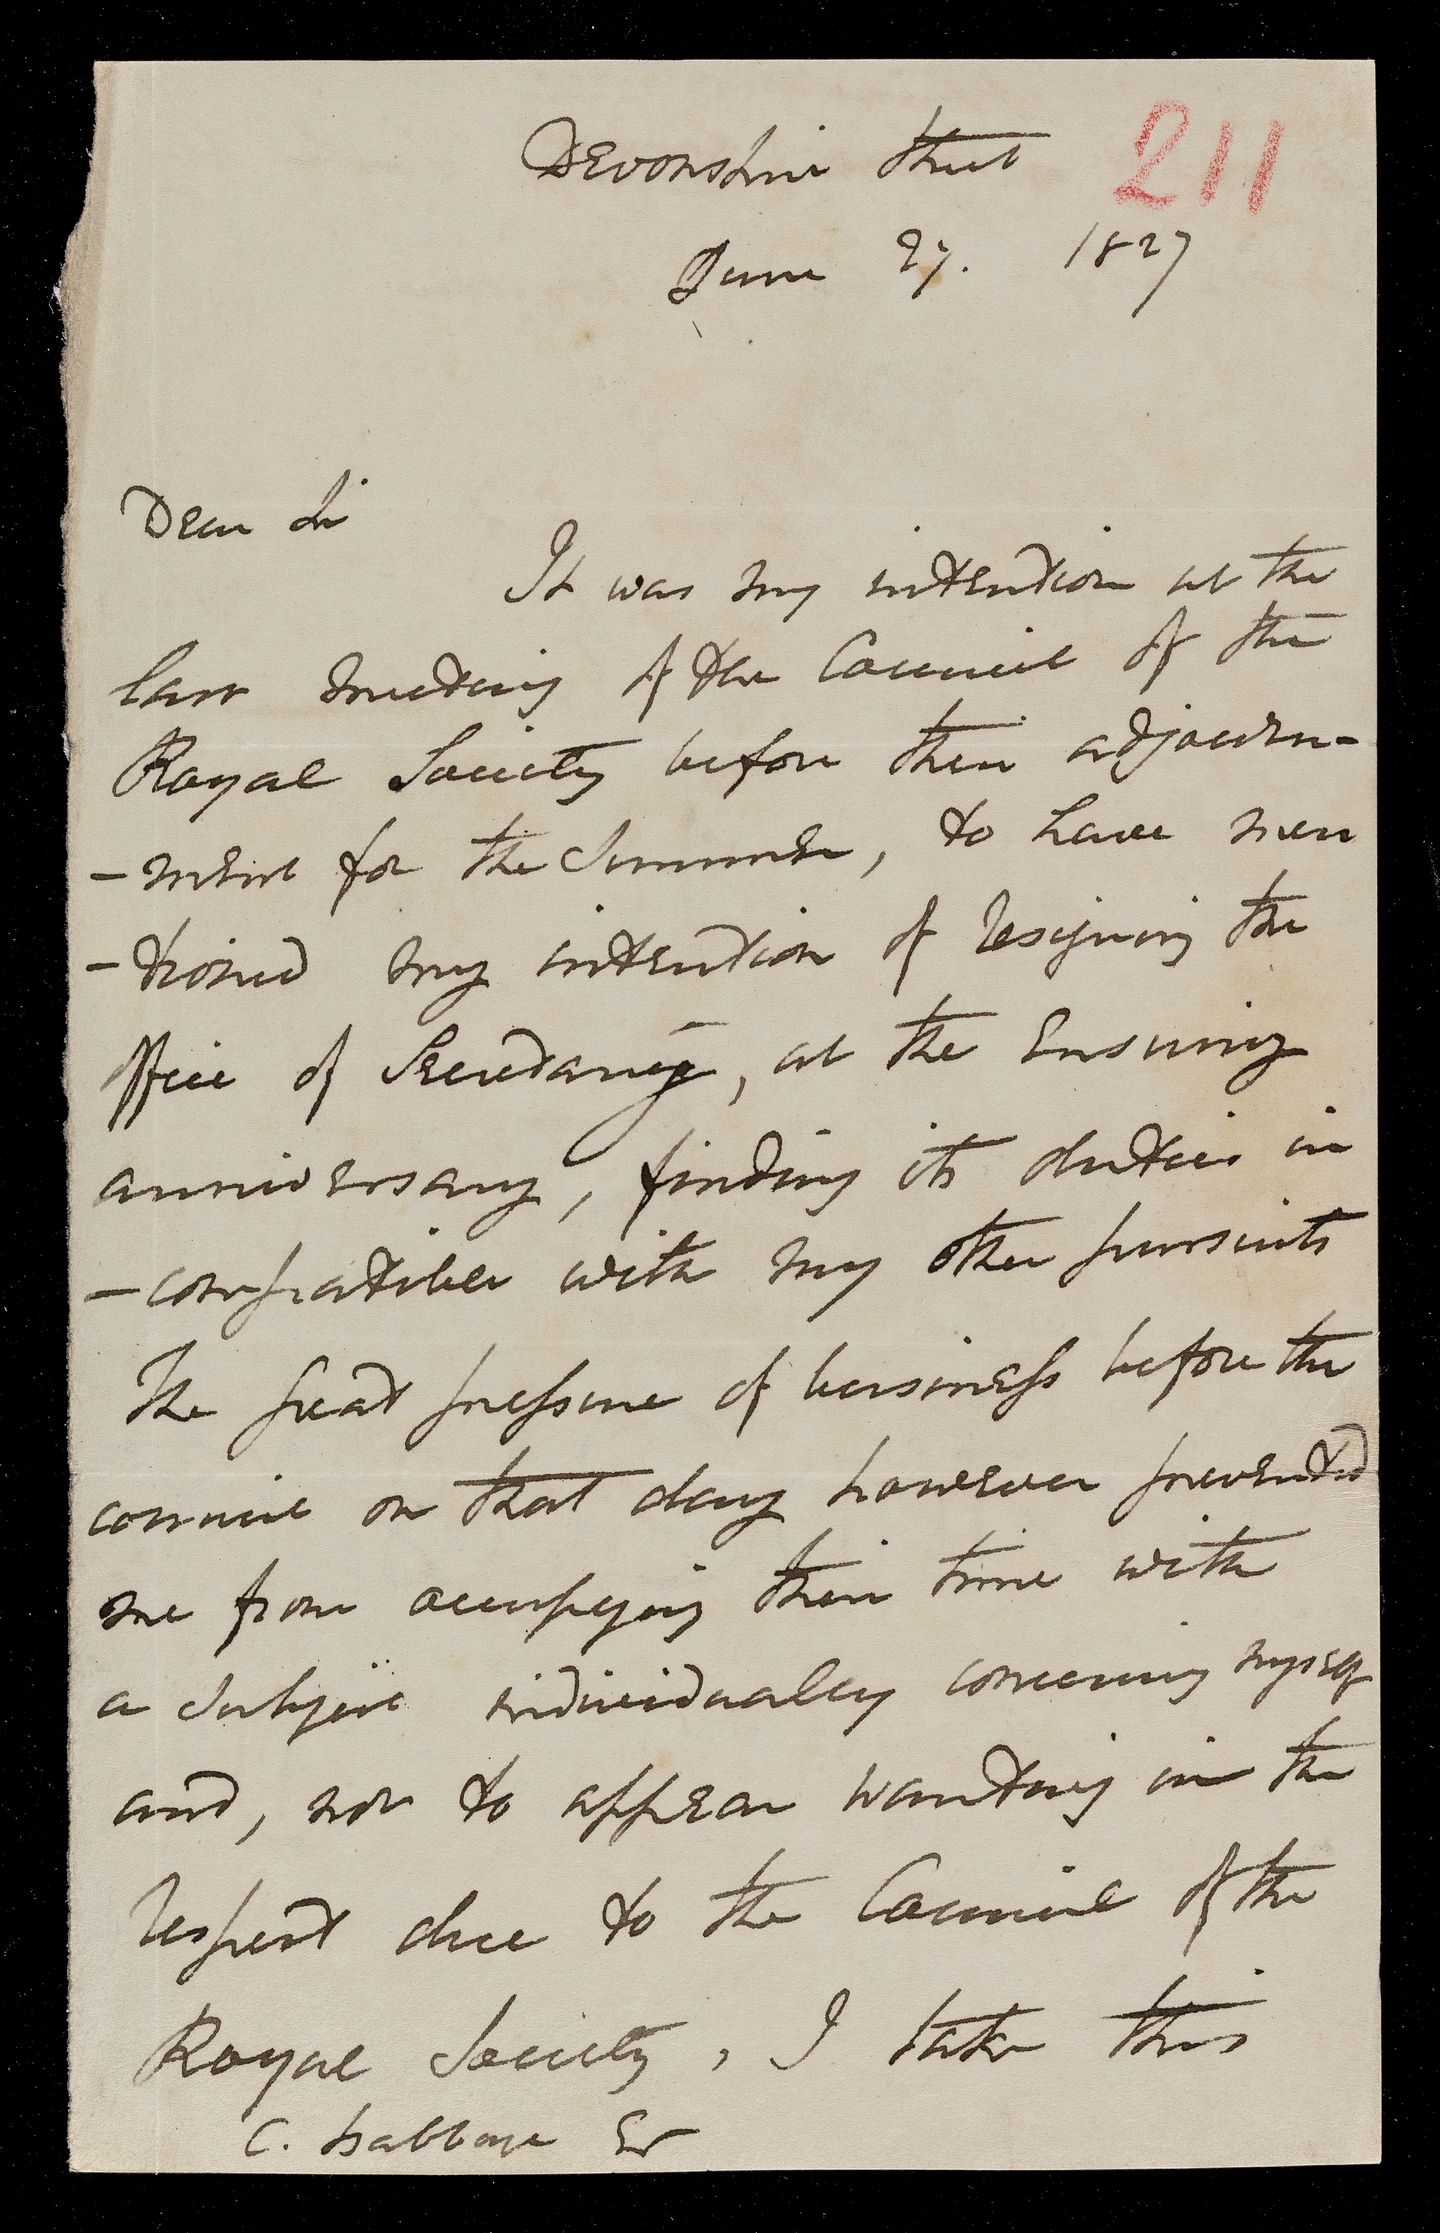 211
Devonshire Street
June 27. 1827
Dear Sir
It was my intention at the
last meeting of the Council of the
Royal Society before their adjourn-
-ment for the Summer, to have men
-tioned my intention of resigning the
office of Secretary, at the Ensuing
anniversary, finding its duties in
-compatible with my other pursuits
The great pressure of business before the
council on that day however prevented
me from occupying their time with
a Subject individually concerning myself
and, not to appear wanting in the
respect due to the Council of the
Royal Society, I take this
C. Babbage Esr